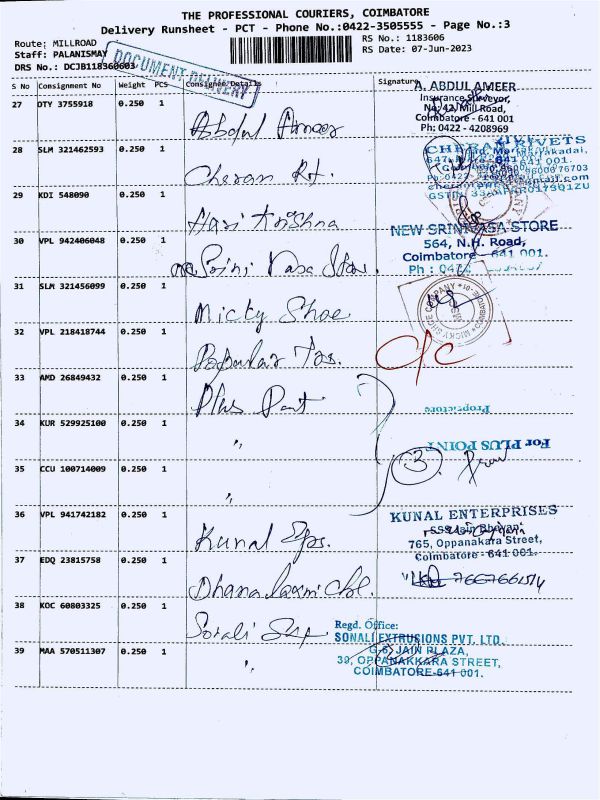 THE PROFESSIONAL COURIERS, COIMBATORE
Delivery Runsheet - PCT - Phone No.:0422-3505555 - Page No.:3
Route: MILLROAD
RS No.: 1183606
Staff: PALANISMAY
RS Date: 07-Jun-2023
DRS No.: DCJB118360603
DOCUMENT DELIVERY
S No Consignment No Weight PCS Consignee Details Signature
27 DTY 3755918 0.250 1 Abdul Ameer
A. ABDUL AMEER
Insurance Surveyor,
No: 42, Mill Road,
Coimbatore - 641 001
Ph: 0422 - 4208969
28 SLM 321462593 0.250 1 Cheran Rt.
CHERAN RIVETS
29 KDI 548090 0.250 1 Hari Krishna
30 VPL 942406048 0.250 1 Srini Vasa Stor.
NEW SRINIVASA STORE
564, N.H. Road,
Coimbatore - 641 001.
31 SLM 321456099 0.250 1 Micky Shoe
MICKY SHOE COMPANY
32 VPL 218418744 0.250 1 Popular Tas.
c/c
33 AMD 26849432 0.250 1 Plus Point
Proprietors
34 KUR 529925100 0.250 1 "
For PLUS POINT
35 CCU 100714009 0.250 1 "
3
36 VPL 941742182 0.250 1 Kunal Eps.
KUNAL ENTERPRISES
765, Oppanakara Street,
Coimbatore - 641 001.
37 EDQ 23815758 0.250 1 Dhana laxmi
38 KOC 60803325 0.250 1 Sonali
Regd. Office:
SONALI EXTRUSIONS PVT. LTD.
G-6, JAIN PLAZA,
39, OPPANAKKARA STREET,
COIMBATORE-641 001.
39 MAA 570511307 0.250 1 "